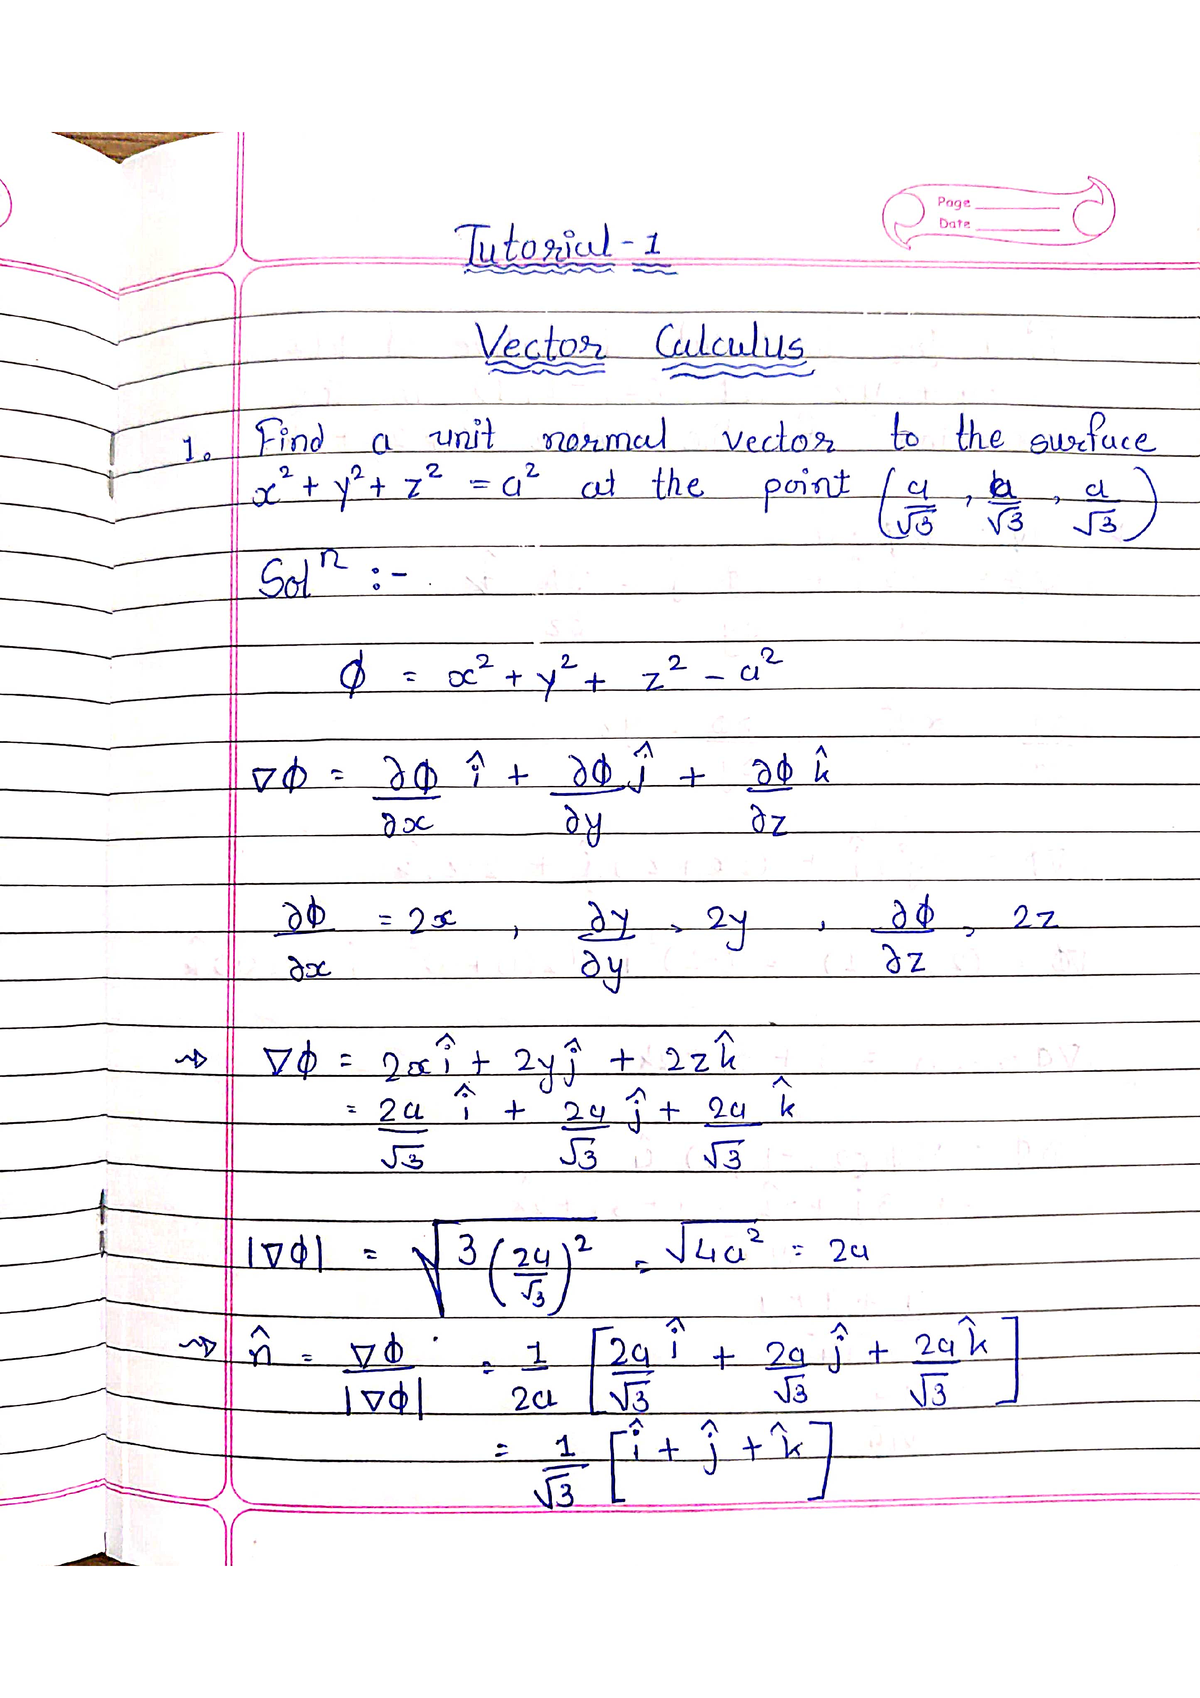 Page
Date
Tutorial - 1
Vector Calculus
1. Find a unit normal vector to the surface
x² + y² + z² = a² at the point (a/√3, a/√3, a/√3)
Solⁿ :-
ϕ = x² + y² + z² - a²
∇ϕ = ∂ϕ/∂x î + ∂ϕ/∂y ĵ + ∂ϕ/∂z k̂
∂ϕ/∂x = 2x , ∂y/∂y , 2y , ∂ϕ/∂z , 2z
⇝ ∇ϕ = 2xî + 2yĵ + 2zk̂
= 2a/√3 î + 2a/√3 ĵ + 2a/√3 k̂
|∇ϕ| = √(3(2a/√3)²) = √(4a²) = 2a
⇝ n̂ = ∇ϕ/|∇ϕ| = 1/2a [2a/√3 î + 2a/√3 ĵ + 2a/√3 k̂]
= 1/√3 [î + ĵ + k̂]